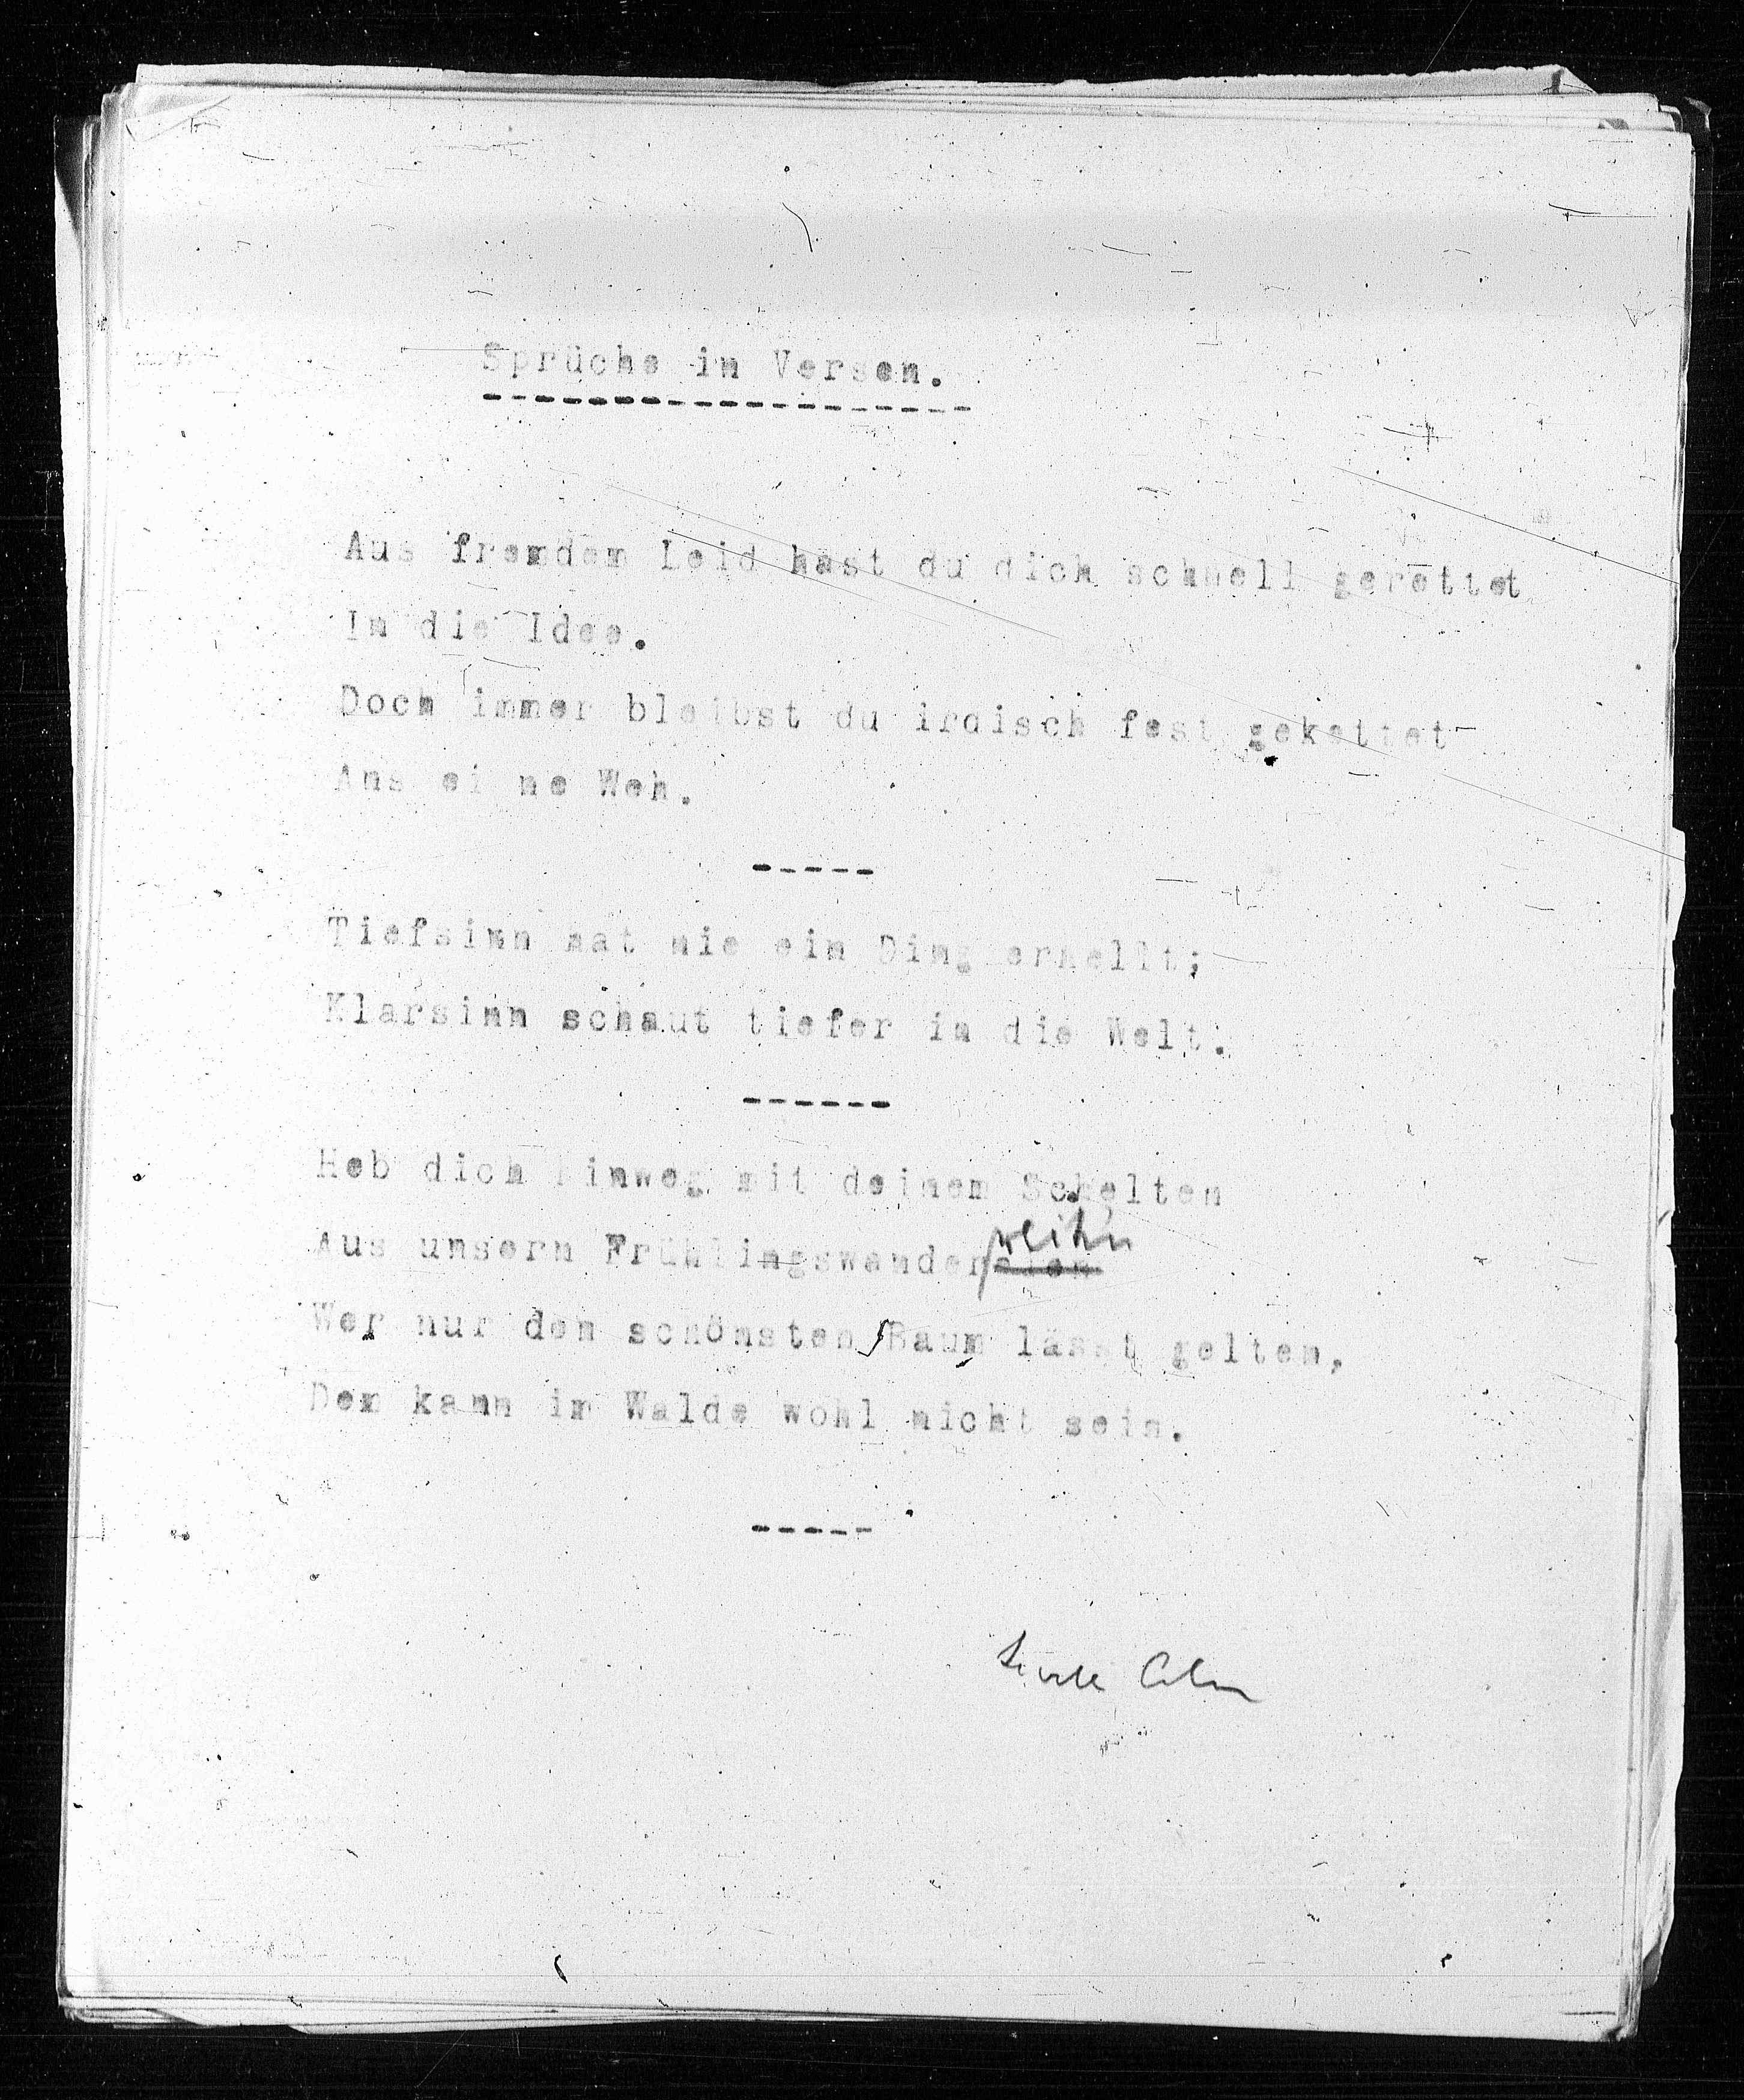 Sprüche in Versen.
Aus fremdem Leid hast du dich schnell gerettet
In die Idee.
Doch immer bleibst du irdisch fest gekettet
Ans ei ne Weh.
-----
Tiefsinn hat nie ein Ding erhellt;
Klarsinn schaut tiefer in die Welt.
------
Heb dich hinweg mit deinem Schelten
reihn
Aus unsern Frühlingswander
Wer nur den schönsten Baum lässt gelten,
Dem kann im Walde wohl nicht sein.
-----